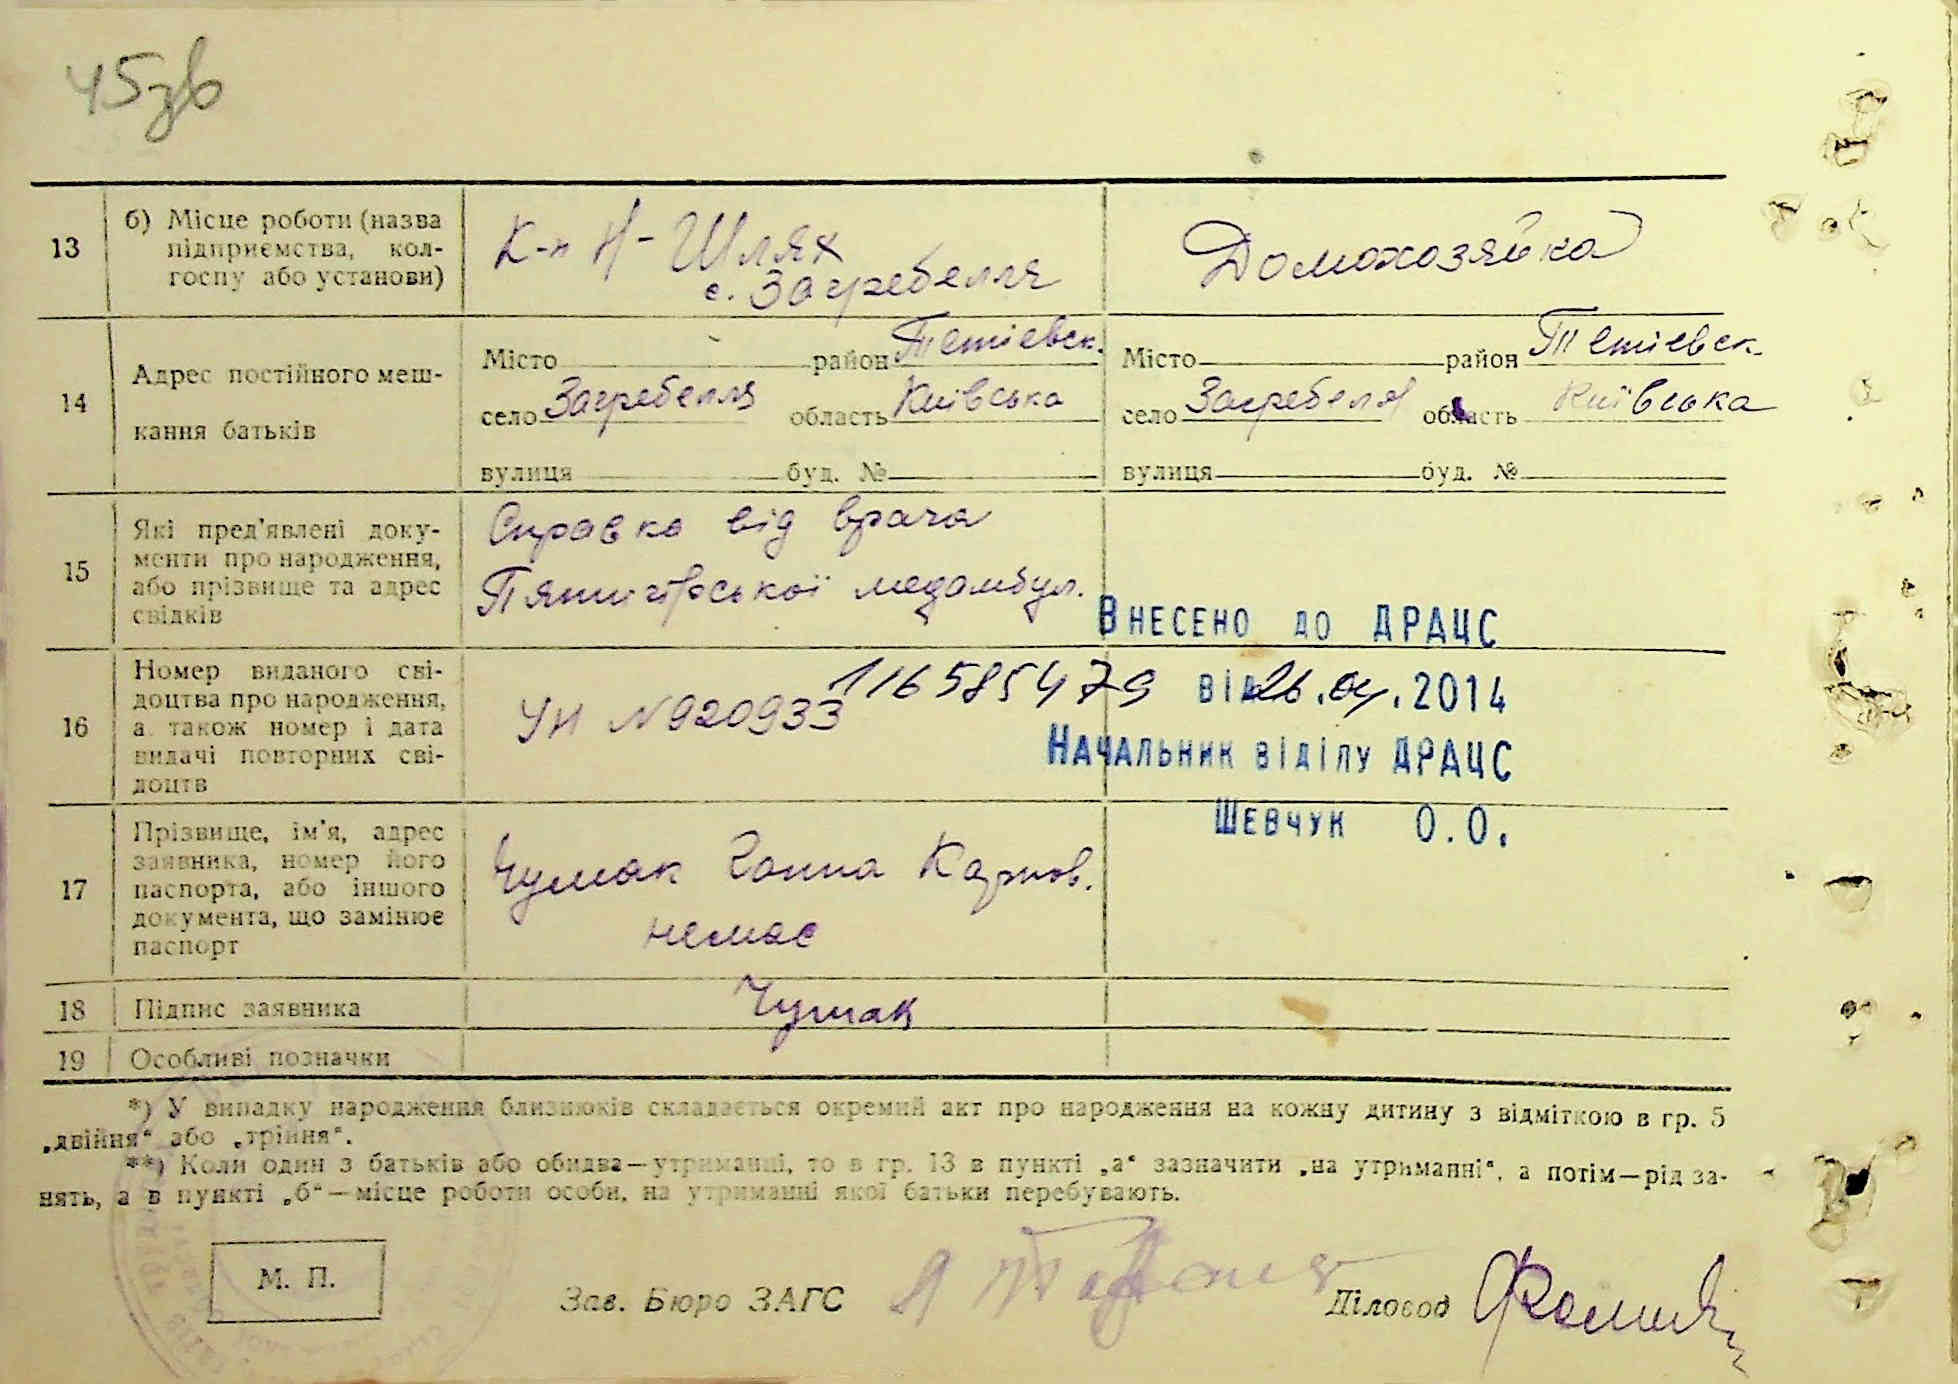 45зв
13 б) Місце роботи (назва
підприємства, кол-
госпу або установи)
К-п Н-Шлях
с. Загребелля
Домохозяйка
14 Адрес постійного меш-
кання батьків
Місто район Тетіевск.
село Загребелля область Київська
вулиця буд. №
Місто район Тетіевск.
село Загребеля область Київська
вулиця буд. №
15 Які пред'явлені доку-
менти про народження,
або прізвище та адрес
свідків
Справка від врача
Пятигорської медамбул.
Внесено до ДРАЦС
16 Номер виданого сві-
доцтва про народження,
а також номер і дата
видачі повторних сві-
доцтв
УН №920933
116585479 від 26.04.2014
Начальник відділу ДРАЦС
Шевчук О.О.
17 Прізвище, ім'я, адрес
заявника, номер його
паспорта, або іншого
документа, що замінює
паспорт
Чумак Ганна Карпов.
немає
18 Підпис заявника
Чумак
19 Особливі позначки
*) У випадку народження близнюків складається окремий акт про народження на кожну дитину з відміткою в гр. 5
„двійня“ або „трійня“.
**) Коли один з батьків або обидва—утриманці, то в гр. 13 в пункті „а“ зазначити „на утриманні“, а потім—рід за-
нять, а в пункті „б“—місце роботи особи, на утриманні якої батьки перебувають.
М. П.
Зав. Бюро ЗАГС
Діловод